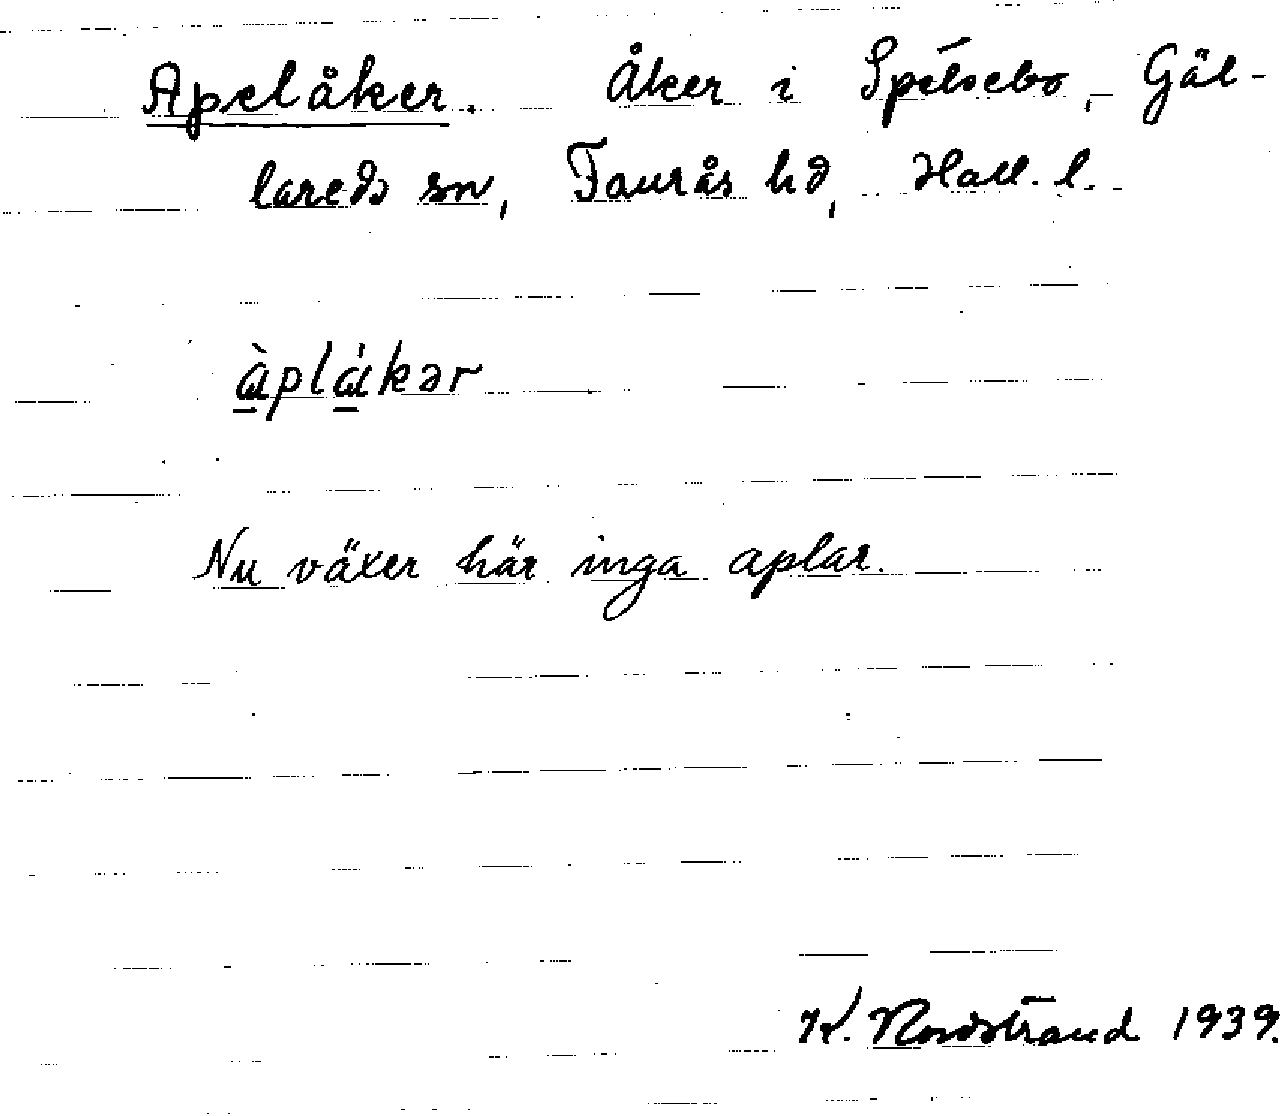 Apelåker. Åker i Spelsebo, Gäl-
lareds sn, Faurås hd, Hall. l.
àplákər
Nu växer här inga aplar.
K. Nordstrand 1939.